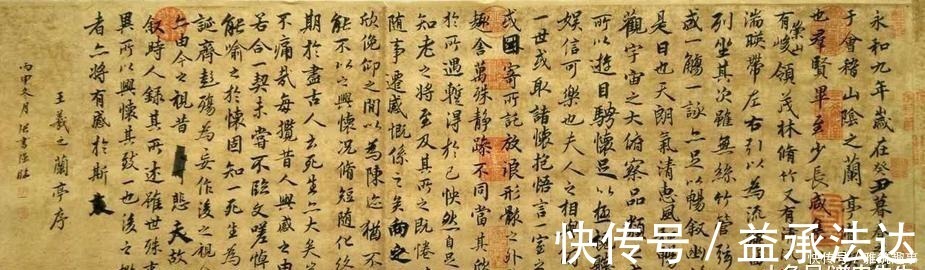 永和九年歲在癸丑暮春
于會稽山陰之蘭亭
也群賢畢至少長咸
崇山
有峻領茂林脩竹又有
湍暎帶左右引以為流
列坐其次雖無絲竹管
盛一觴一詠亦足以暢叙幽
是日也天朗氣清惠風
觀宇宙之大俯察品類
所以遊目騁懷足以極
娛信可樂也夫人之相
一世或取諸懷抱悟言一室
或因寄所託放浪形骸之外
趣舍萬殊靜躁不同當其欣
於所遇暫得於己怏然自足
知老之將至及其所之既惓
隨事遷感慨係之矣向之
欣俛仰之間以為陳迹猶不
能不以之興懷況脩短隨化終
期於盡古人云死生亦大矣
不痛哉每攬昔人興感之由
若合一契未嘗不臨文嗟悼
能喻之於懷固知一死生為
誕齊彭殤為妄作後之視
亦由今之視昔悲夫故
叙時人録其所述雖世殊事
異所以興懷其致一也後之
者亦將有感於斯文
王羲之蘭亭序
丙申冬月
快传号／益承法达